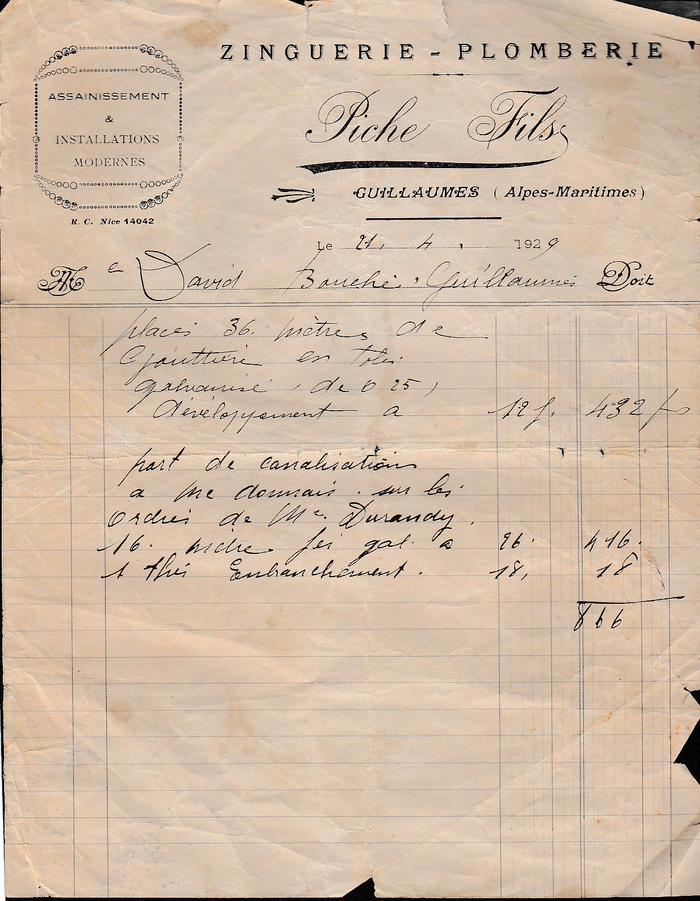 ZINGUERIE - PLOMBERIE
ASSAINISSEMENT
&
INSTALLATIONS
MODERNES
R. C. Nice 14042
Piche Fils
GUILLAUMES (Alpes-Maritimes)
Le 21. 4. 1929
M David Bouché. Guillaumes Doit
placés 36. mètres de
Gouttière en tôle
galvanisé (de 0 25)
dévéloppement a 12 f. 432 fs
part de canalisation
a Me donnais. sur les
Ordres de Mr. Durandy.
16. mètre fer gal. a 26. 416.
1 thés Embranchement. 18. 18
866